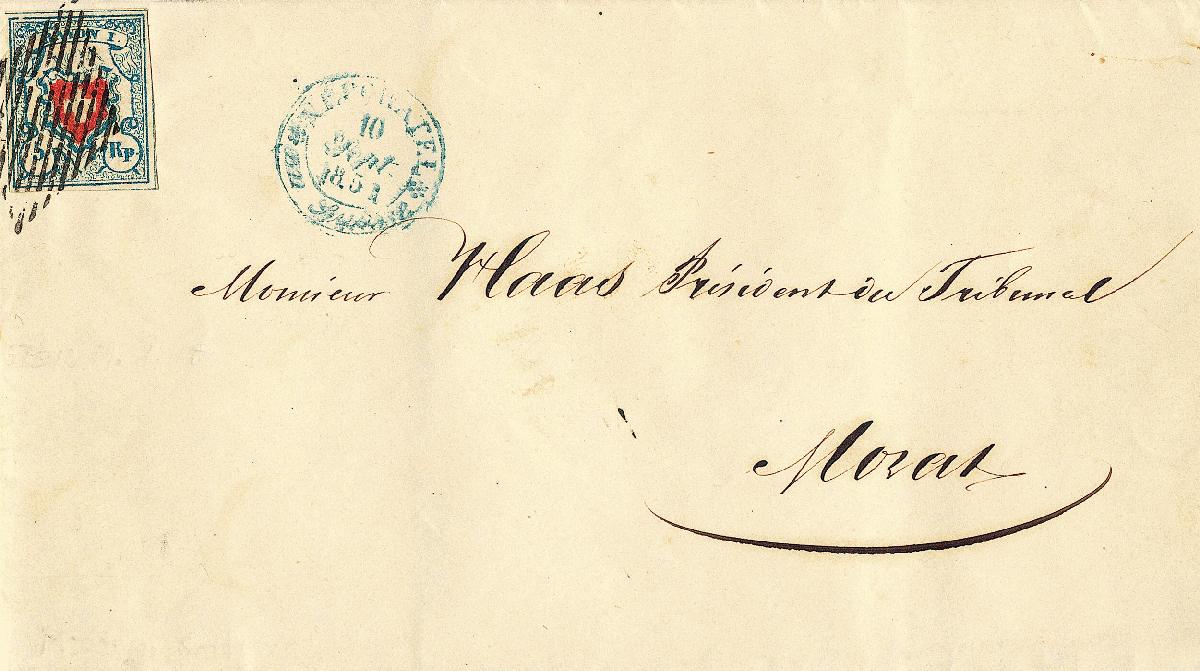 RAYON I.
5 Rp.
NEUCHATEL
10
Sept.
1851
Suisse
Monsieur Haas Président du Tribunal
Morat